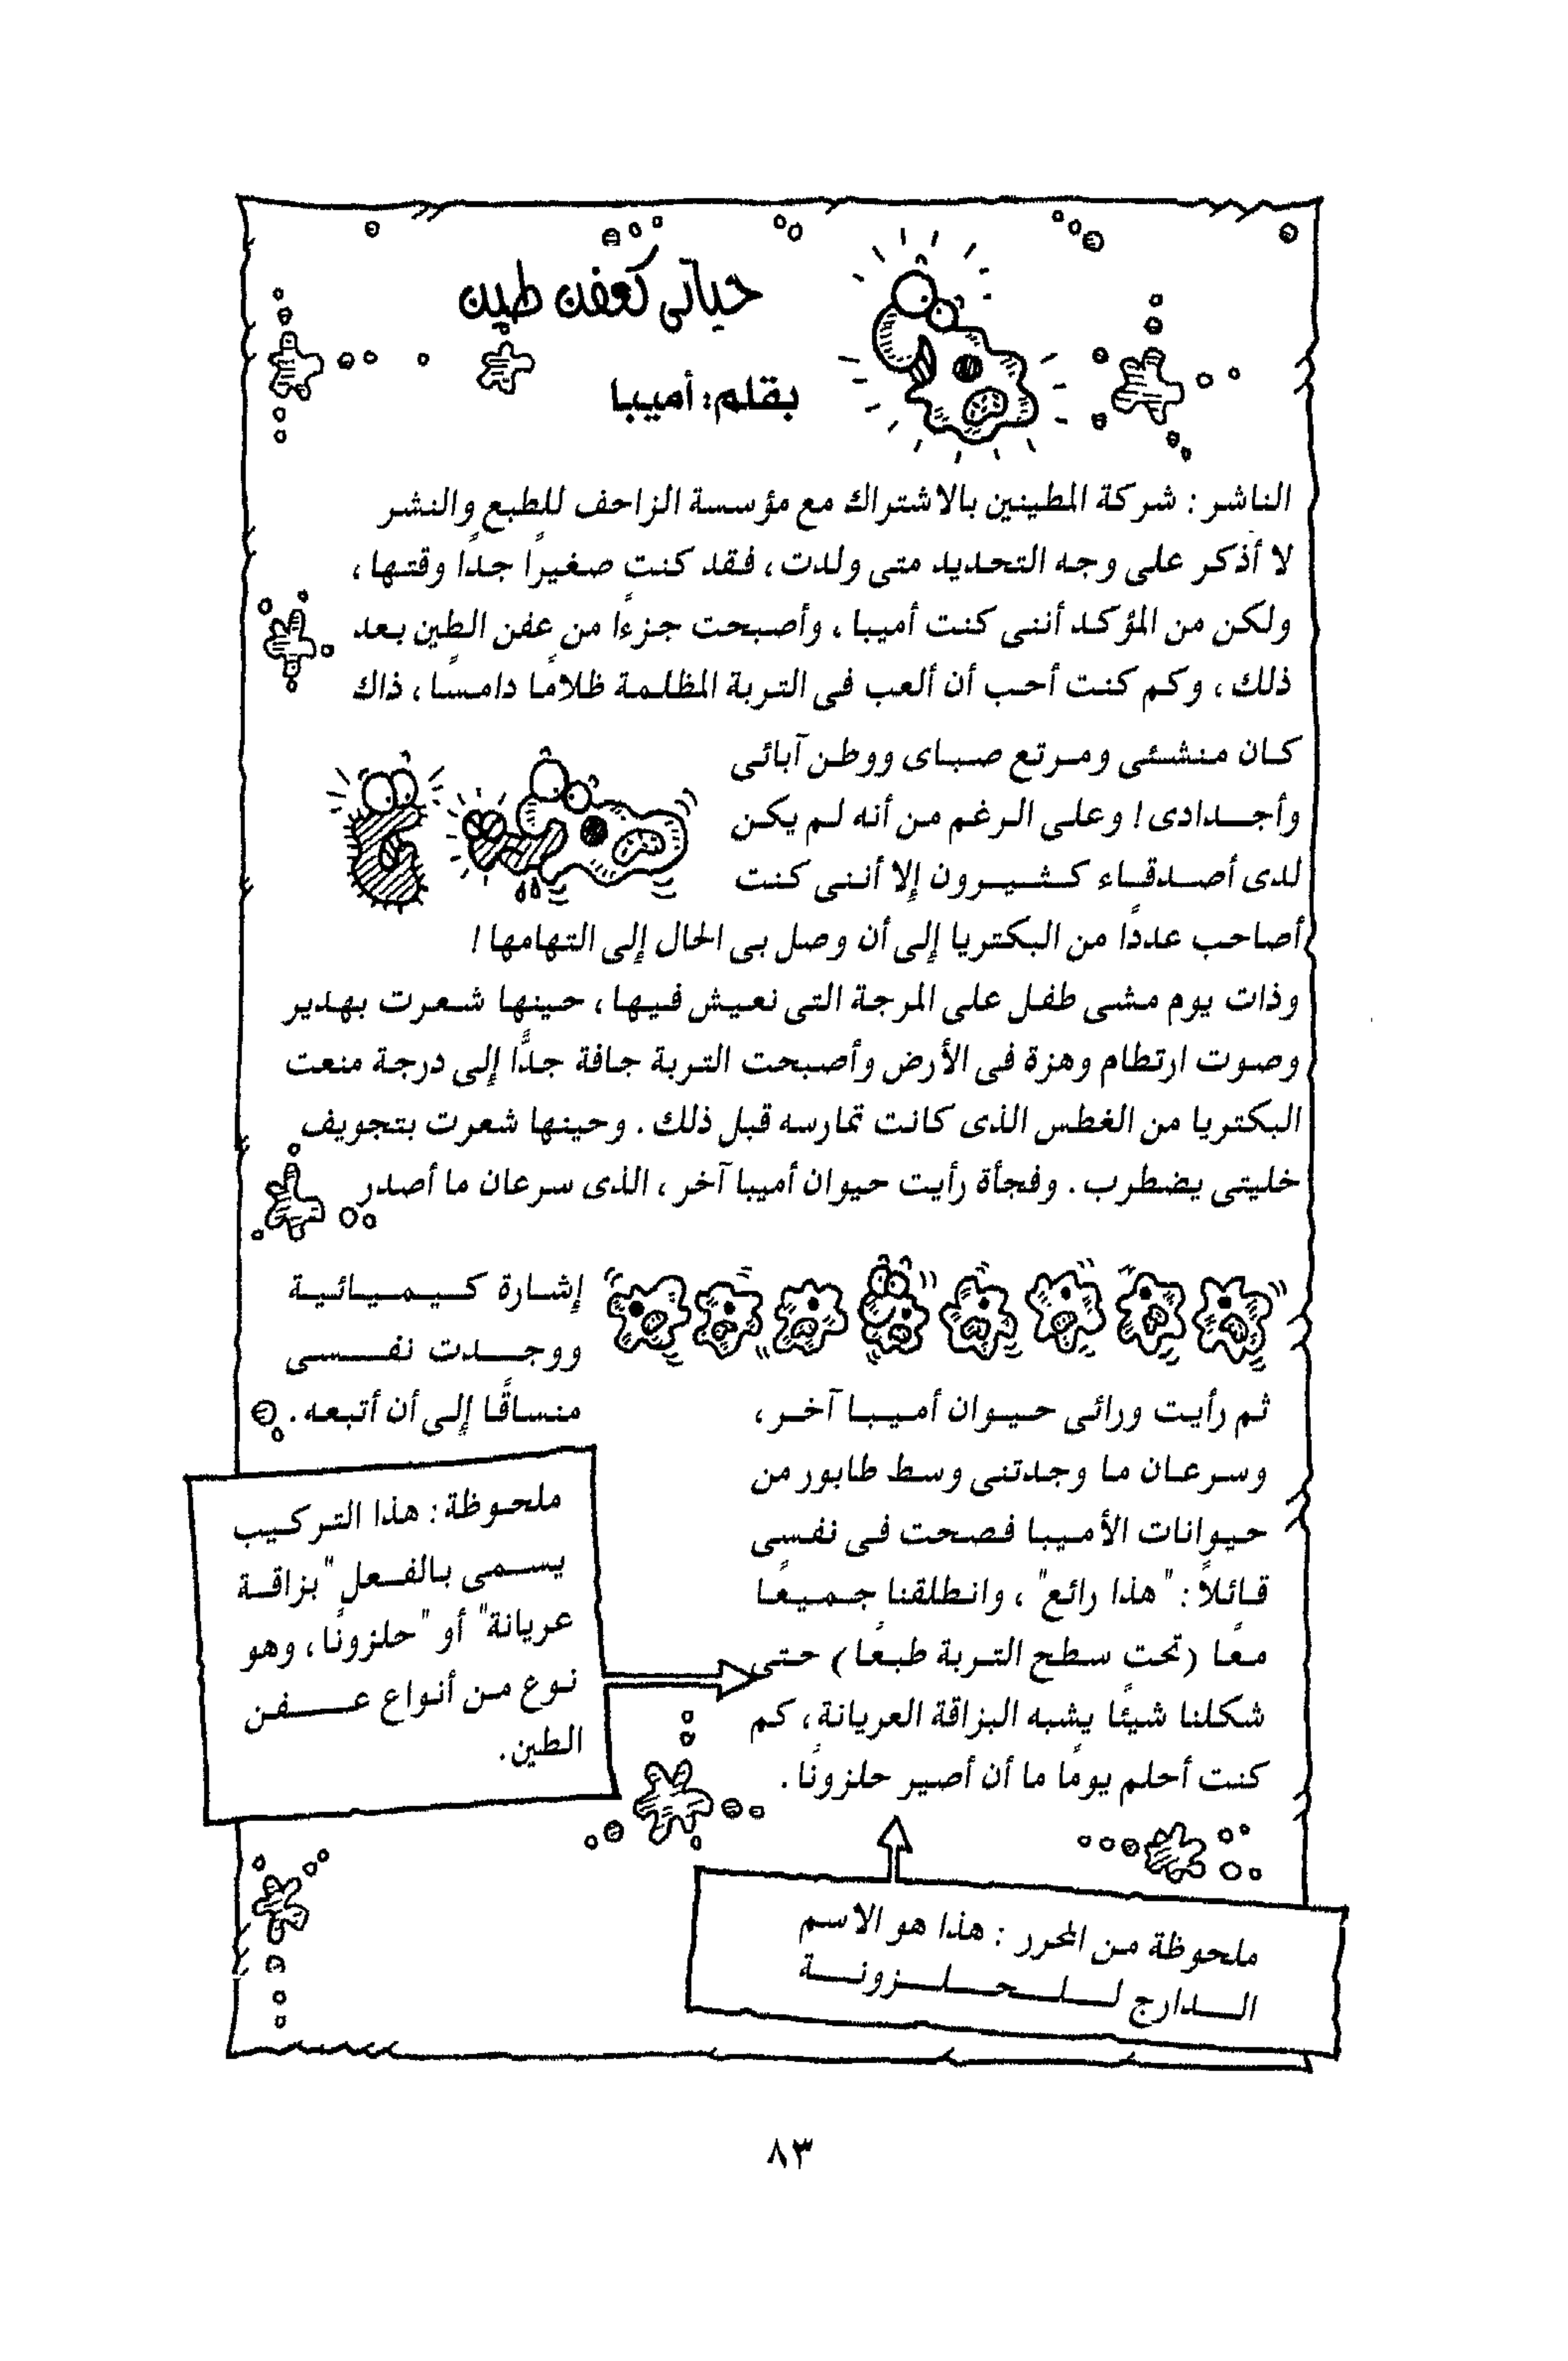 حياتى كعفن طين
بقلم: أميبا
الناشر : شركة المطينين بالاشتراك مع مؤسسة الزاحف للطبع والنشر
لا أذكر على وجه التحديد متى ولدت، فقد كنت صغيرًا جدًا وقتها،
ولكن من المؤكد أننى كنت أميبا ، وأصبحت جزءًا من عفن الطين بعد
ذلك ، وكم كنت أحب أن ألعب فى التربة المظلمة ظلامًا دامسًا ، ذاك
كان منشئى ومرتع صباى ووطن آبائى
وأجدادى ! وعلى الرغم من أنه لم يكن
لدى أصدقاء كثيرون إلا أننى كنت
أصاحب عددًا من البكتريا إلى أن وصل بى الحال إلى التهامها !
وذات يوم مشى طفل على المرجة التى نعيش فيها ، حينها شعرت بهدير
وصوت ارتطام وهزة فى الأرض وأصبحت التربة جافة جدًّا إلى درجة منعت
البكتريا من الغطس الذى كانت تمارسه قبل ذلك . وحينها شعرت بتجويف
خليتى يضطرب . وفجأة رأيت حيوان أميبا آخر ، الذى سرعان ما أصدر
إشارة كيميائية
ووجدت نفسى
منساقًا إلى أن أتبعه .
ثم رأيت ورائى حيوان أميبا آخر ،
وسرعان ما وجدتنى وسط طابور من
حيوانات الأميبا فصحت فى نفسى
قائلاً : "هذا رائع" ، وانطلقنا جميعًا
معًا (تحت سطح التربة طبعًا) حتى
شكلنا شيئًا يشبه البزاقة العريانة ، كم
كنت أحلم يومًا ما أن أصير حلزونًا .
ملحوظة : هذا التركيب
يسمى بالفعل "بزاقة
عريانة" أو "حلزونًا ، وهو
نوع من أنواع عفن
الطين .
ملحوظة من المحرر : هذا هو الاسم
الدارج للحلزونة
٨٣